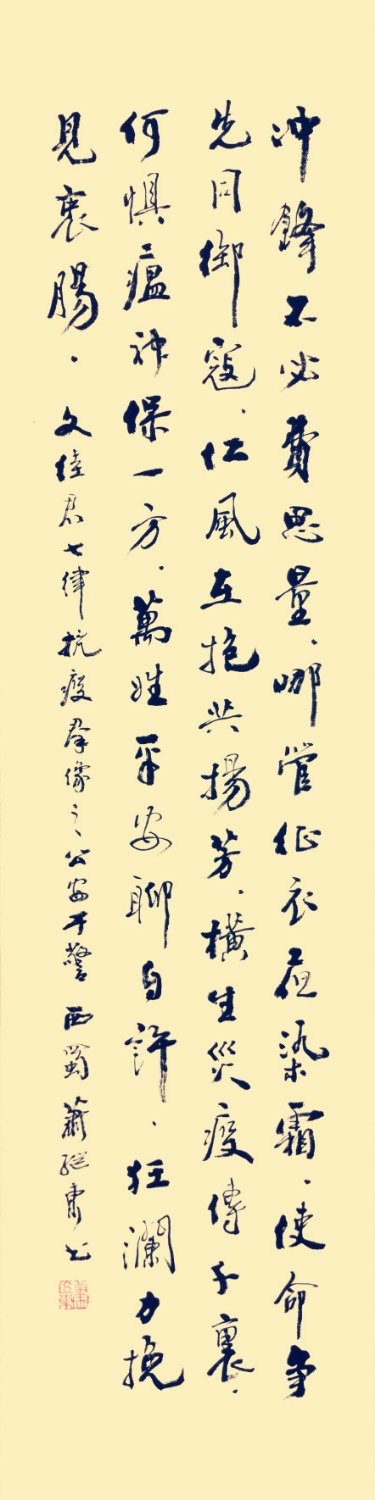 冲鋒不必費思量、哪管征衣夜染霜、使命争
先同御寇、仁風在抱共揚芳、橫生災疫傳千裏、
何懼瘟神保一方、萬姓平安聊自許、狂瀾力挽
見衷腸、文佳君七律抗疫群像之公安干警 西蜀蕭继